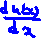 du(x)
dx